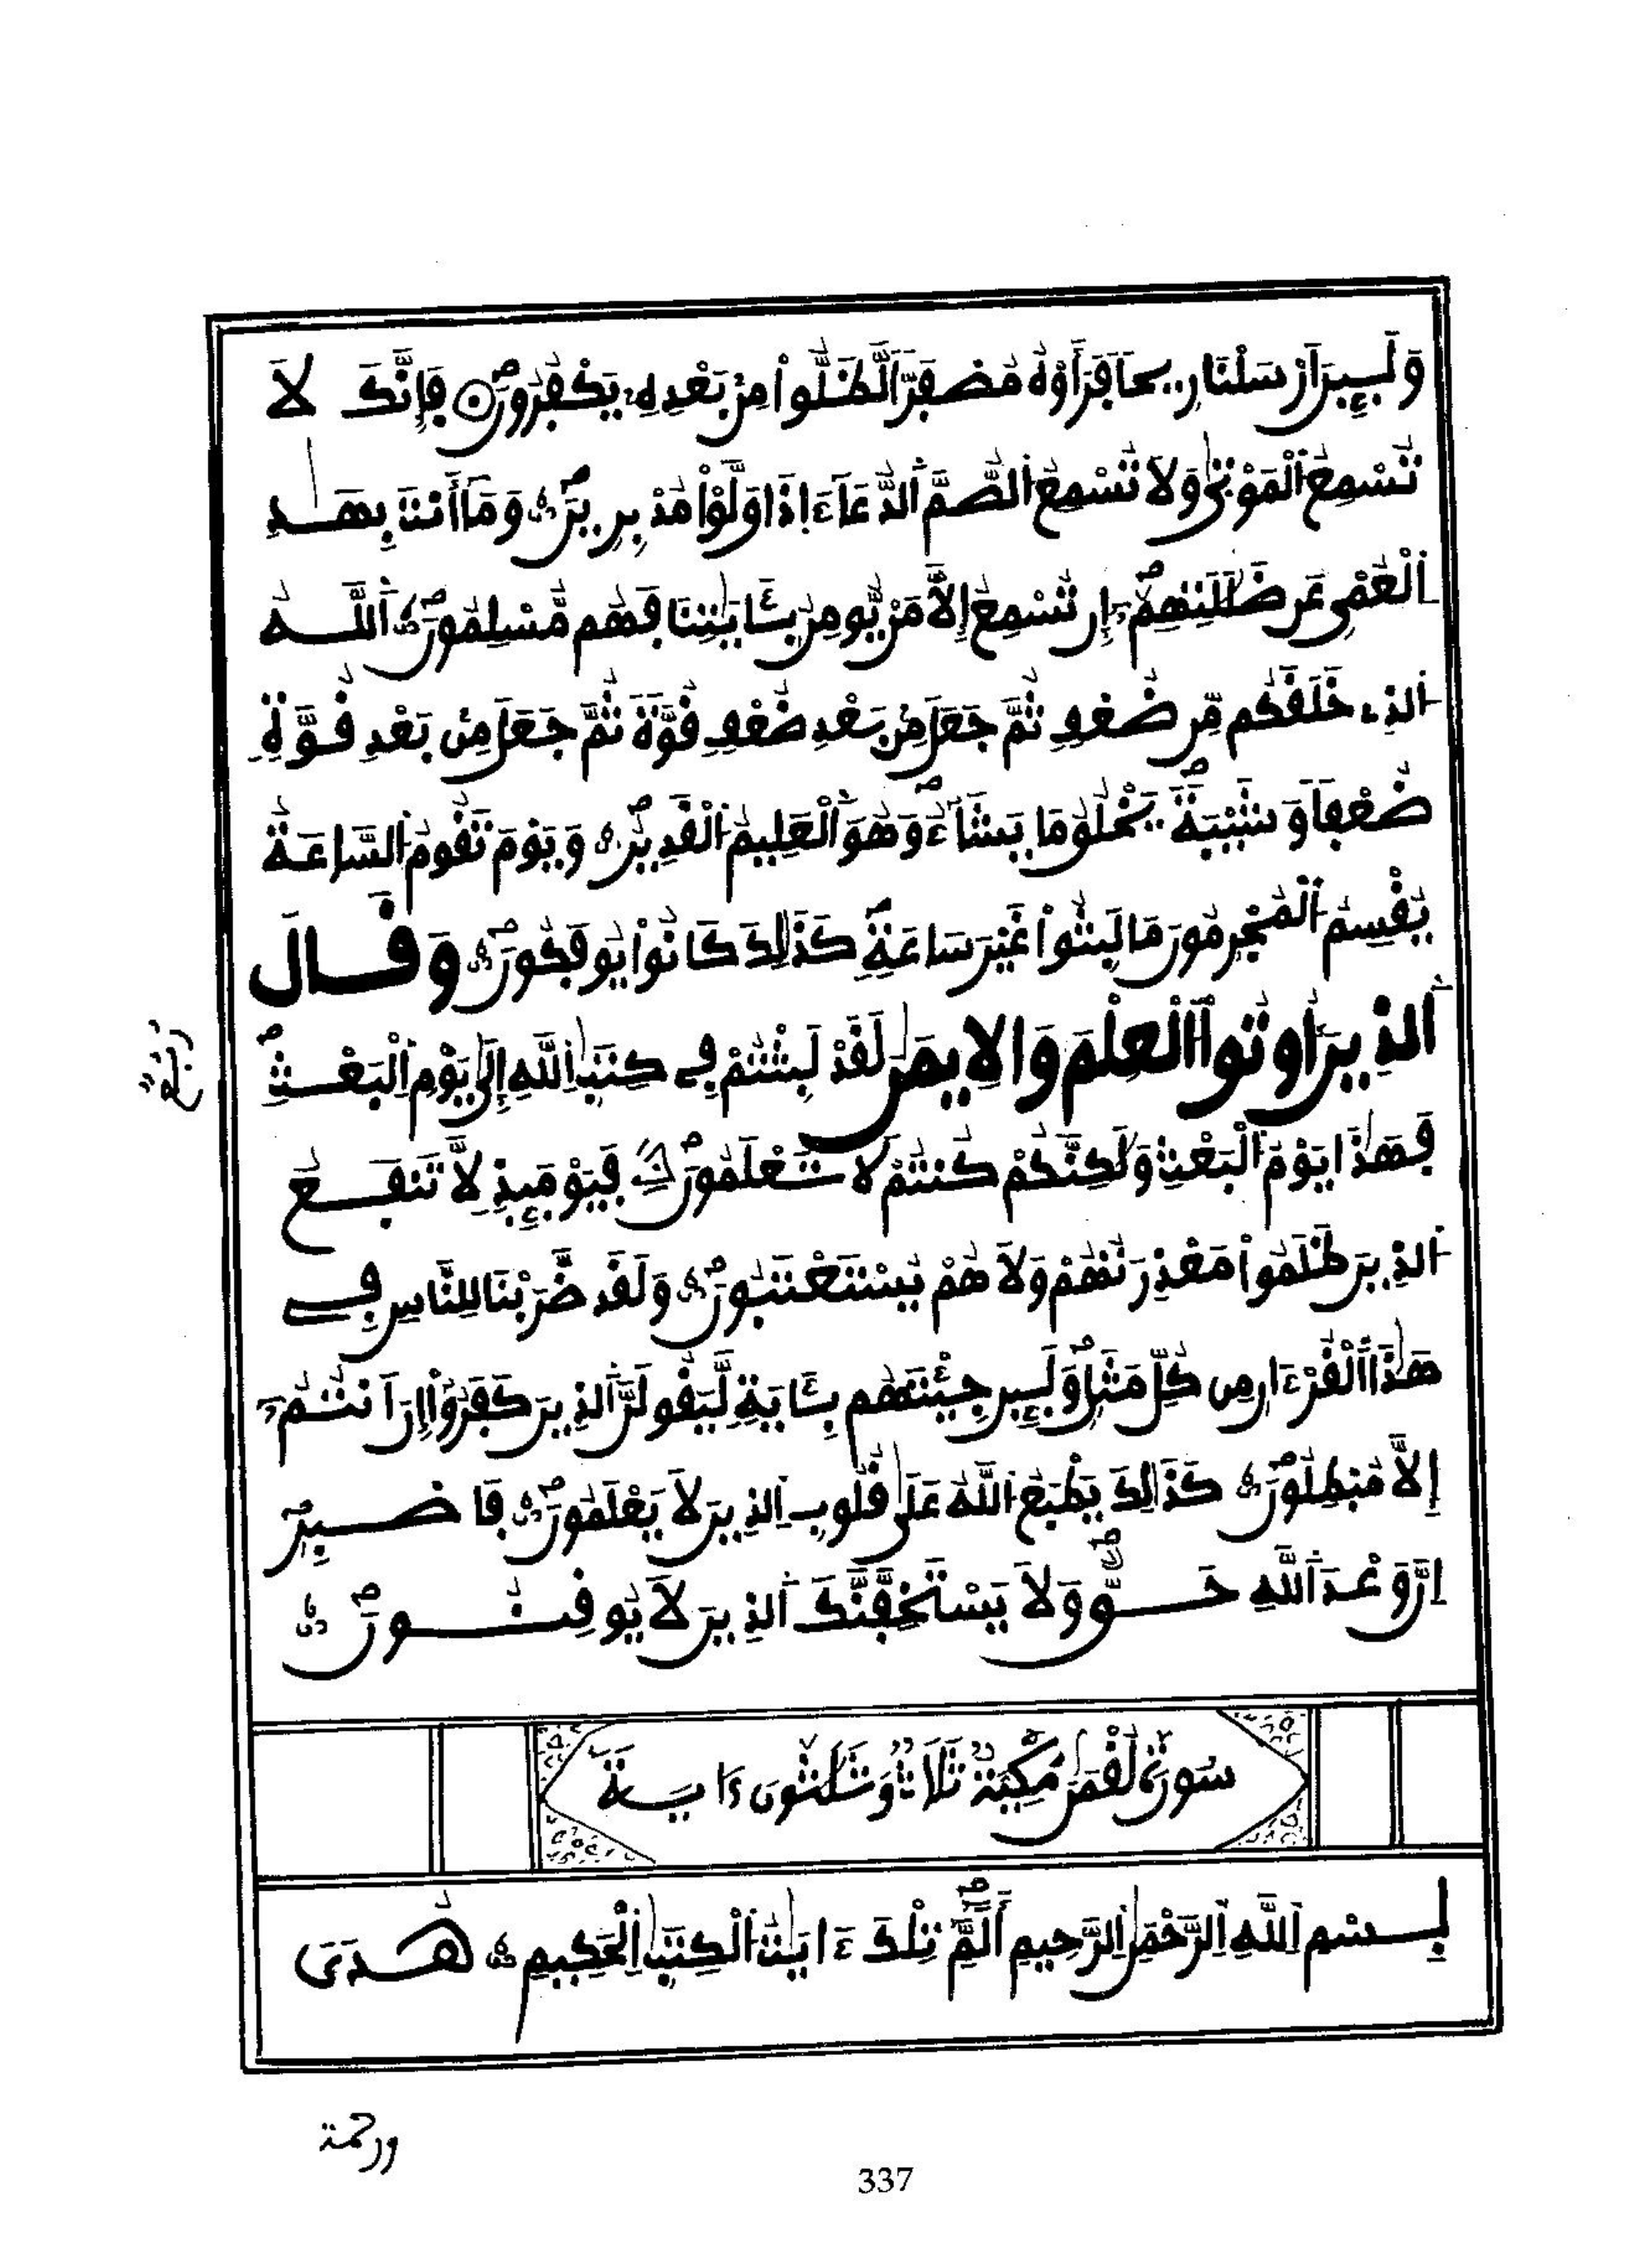 وَلَئِنَ اَرْسَلْنَا رِيحاً فَرَأَوْهُ مُصْفَرّاً لَّظَلُّواْ مِنۢ بَعْدِهِۦ يَكْفُرُونَۖ فَإِنَّكَ لَا
تُسْمِعُ اُ۬لْمَوْت۪يٰ وَلَا تُسْمِعُ اُ۬لصُّمَّ اَ۬لدُّعَآءَ اِذَا وَلَّوْاْ مُدْبِرِينَۖ وَمَآ أَنتَ بِهَٰدِ
اِ۬لْعُمْيِ عَن ضَلَٰلَتِهِمُۥٓۖ إِن تُسْمِعُ إِلَّا مَنْ يُّومِنُ بِـَٔايَٰتِنَا فَهُم مُّسْلِمُونَۖ اَ۬للَّهُ
اُ۬لذِے خَلَقَكُم مِّن ضُعْفٖ ثُمَّ جَعَلَ مِنۢ بَعْدِ ضُعْفٖ قُوَّةٗ ثُمَّ جَعَلَ مِنۢ بَعْدِ قُوَّةٖ
ضُعْفاٗ وَشَيْبَةٗۖ يَخْلُقُ مَا يَشَآءُۖ وَهُوَ اَ۬لْعَلِيمُ اُ۬لْقَدِيرُۖ وَيَوْمَ تَقُومُ اُ۬لسَّاعَةُ
يُقْسِمُ اُ۬لْمُجْرِمُونَ مَا لَبِثُواْ غَيْرَ سَاعَةٖۖ كَذَٰلِكَ كَانُواْ يُوفَكُونَۖ وَقَالَ
اَ۬لذِينَ أُوتُواْ اُ۬لْعِلْمَ وَالِايمَٰنَ لَقَدْ لَبِثْتُمْ فِے كِتَٰبِ اِ۬للَّهِ إِلَيٰ يَوْمِ اِ۬لْبَعْثِۖ
رُبُع
فَهَٰذَا يَوْمُ اُ۬لْبَعْثِ وَلَٰكِنَّكُمْ كُنتُمْ لَا تَعْلَمُونَۖ فَيَوْمَئِذٖ لَّا تَنفَعُ
اُ۬لذِينَ ظَلَمُواْ مَعْذِرَتُهُمْ وَلَا هُمْ يُسْتَعْتَبُونَۖ وَلَقَد ضَّرَبْنَا لِلنَّاسِ فِے
هَٰذَا اَ۬لْقُرْءَانِ مِن كُلِّ مَثَلٖۖ وَلَئِن جِئْتَهُم بِـَٔايَةٖ لَّيَقُولَنَّ اَ۬لذِينَ كَفَرُوٓاْ إِنَ اَنتُمُۥٓ
إِلَّا مُبْطِلُونَۖ كَذَٰلِكَ يَطْبَعُ اُ۬للَّهُ عَلَيٰ قُلُوبِ اِ۬لذِينَ لَا يَعْلَمُونَۖ فَاصْبِرِ
اِنَّ وَعْدَ اَ۬للَّهِ حَقّٞۖ وَلَا يَسْتَخِفَّنَّكَ اَ۬لذِينَ لَا يُوقِنُونَۖ
سُورَةُ لُقْمَٰنَ مَكِّيَّةٌ ثَلَاثٌ وَثَلَٰثُونَ ءَايَةً
بِسْمِ اِ۬للَّهِ اِ۬لرَّحْمَٰنِ اِ۬لرَّحِيمِ أَلَٓمِّٓۖ تِلْكَ ءَايَٰتُ اُ۬لْكِتَٰبِ اِ۬لْحَكِيمِ هُدىٗ
ورحمة
337